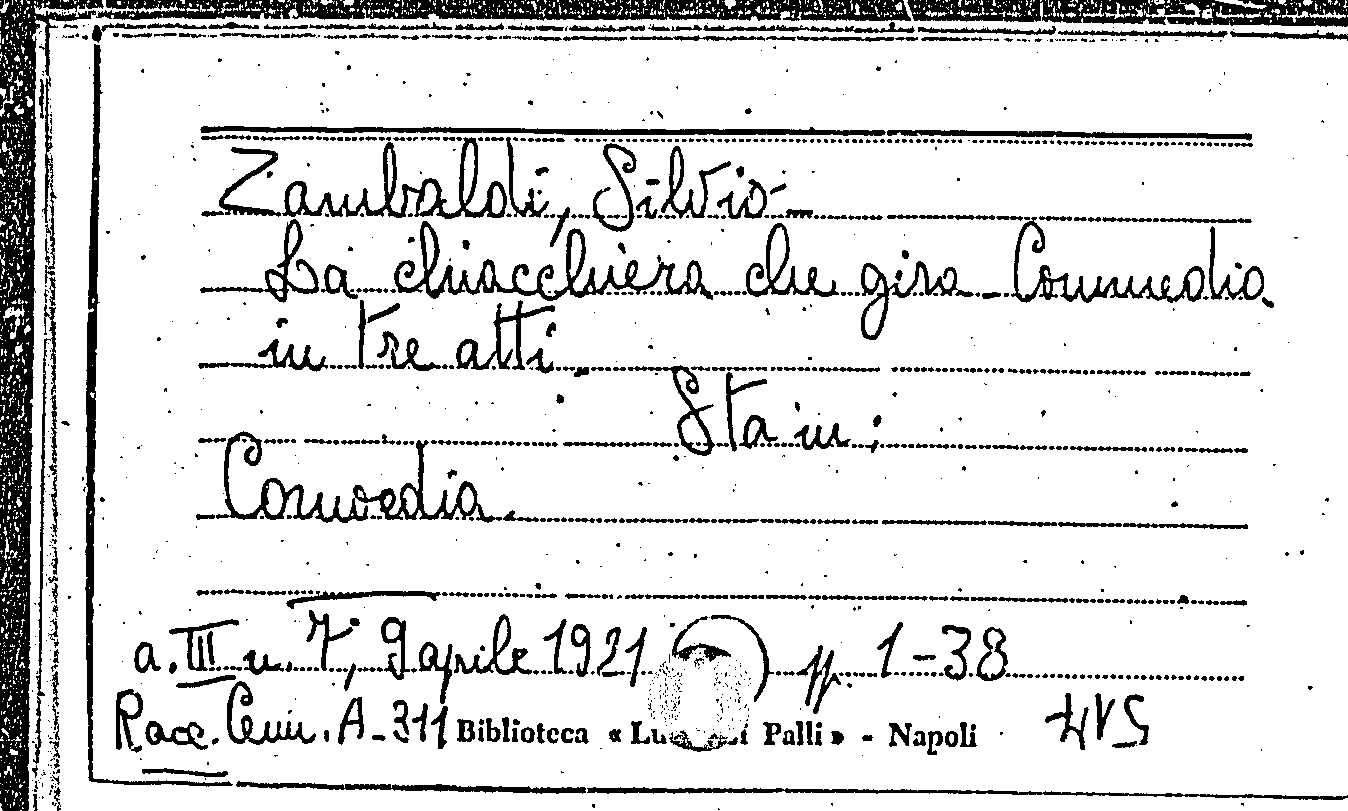 Zambaldi, Silvio -
La chiacchiera che gira - Commedia
in tre atti.
Sta in:
Comoedia.
a. III n. 7, 9 aprile 1921 pp. 1-38
Racc. Cim. A-311 Biblioteca « Lu Palli » - Napoli